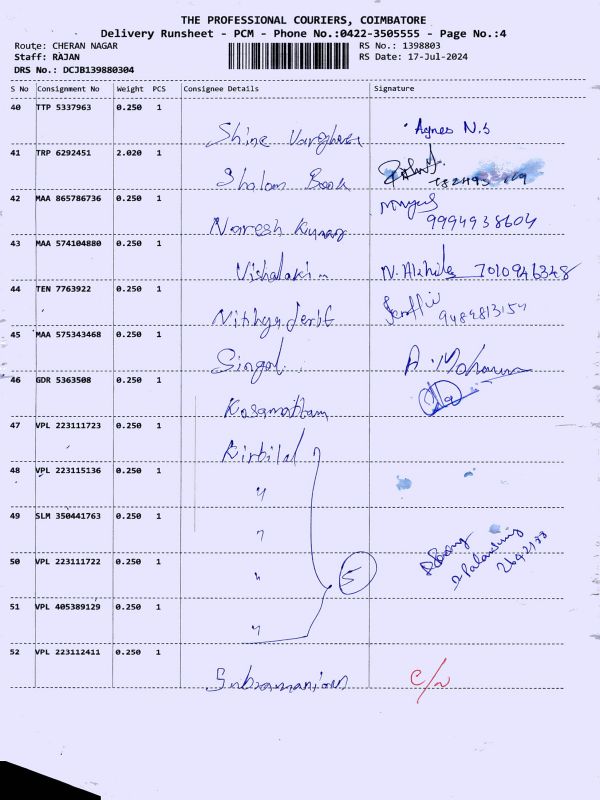 THE PROFESSIONAL COURIERS, COIMBATORE
Delivery Runsheet - PCM - Phone No.:0422-3505555 - Page No.:4
Route: CHERAN NAGAR
RS No.: 1398803
Staff: RAJAN
RS Date: 17-Jul-2024
DRS No.: DCJB139880304
S No Consignment No Weight PCS Consignee Details Signature
40 TTP 5337963 0.250 1
Shine Varghese Agnes N.S
41 TRP 6292451 2.020 1
Shalom Book
42 MAA 865786736 0.250 1
Naresh Kumar 9994938604
43 MAA 574104880 0.250 1
Vishalakshi N. Akhila 7010946348
44 TEN 7763922 0.250 1
Nithya Jerif 9489813154
45 MAA 575343468 0.250 1
Singal A. Mohanan
46 GDR 5363508 0.250 1
Kosamattam
47 VPL 223111723 0.250 1
Kirbilal
48 VPL 223115136 0.250 1
"
49 SLM 350441763 0.250 1
"
50 VPL 223111722 0.250 1
" 5
2642133
51 VPL 405389129 0.250 1
"
52 VPL 223112411 0.250 1
Subramaniam